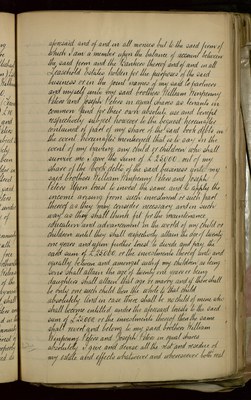 aforesaid and of and in all moneys due to the said firm of
which I am a member upon the balance of account between
the said firm and the Bankers thereof and of and in all
Leasehold estates holden for the purposes of the said
business or in the joint names of my said co partners
and myself unto my said brothers William Humphrey
Peters and Joseph Peters in equal shares as tenants in
common and for their own absolute use and benefit
respectively subject however to the proviso hereinafter
contained of part of my share of the said book debts in
the event hereinafter mentioned that is to say in the
event of my leaving any child or children who shall
survive me I give the sum of £25000 out of my
share of the book debts of the said business unto my
said brothers William Humphrey Peters and Joseph
Peters Upon trust to invest the same and to apply the
income arising from such investment or such part
thereof as they may consider necessary and in such
way as they shall think fit for the maintenance
education and advancement in the world of my child or
children until they shall respectively attain the age of twenty
one years and upon further trust to divide and pay the
said sum of £25000 or the investments thereof
equally between and amongst such of my children as being
sons shall attain the age of twenty one years or being
daughters shall attain that age or marry and if there shall
be only one such child then the whole to that child
absolutely And in case there shall be no child of mine who
shall become entitled under the aforesaid trusts to the said
sum of £25000 or the investments thereof then the same
shall revert and belong to my said brothers William
Humphrey Peters and Joseph Peters in equal shares
absolutely I give and devise all the rest and residue of
my estate and effects whatsoever and wheresoever both real